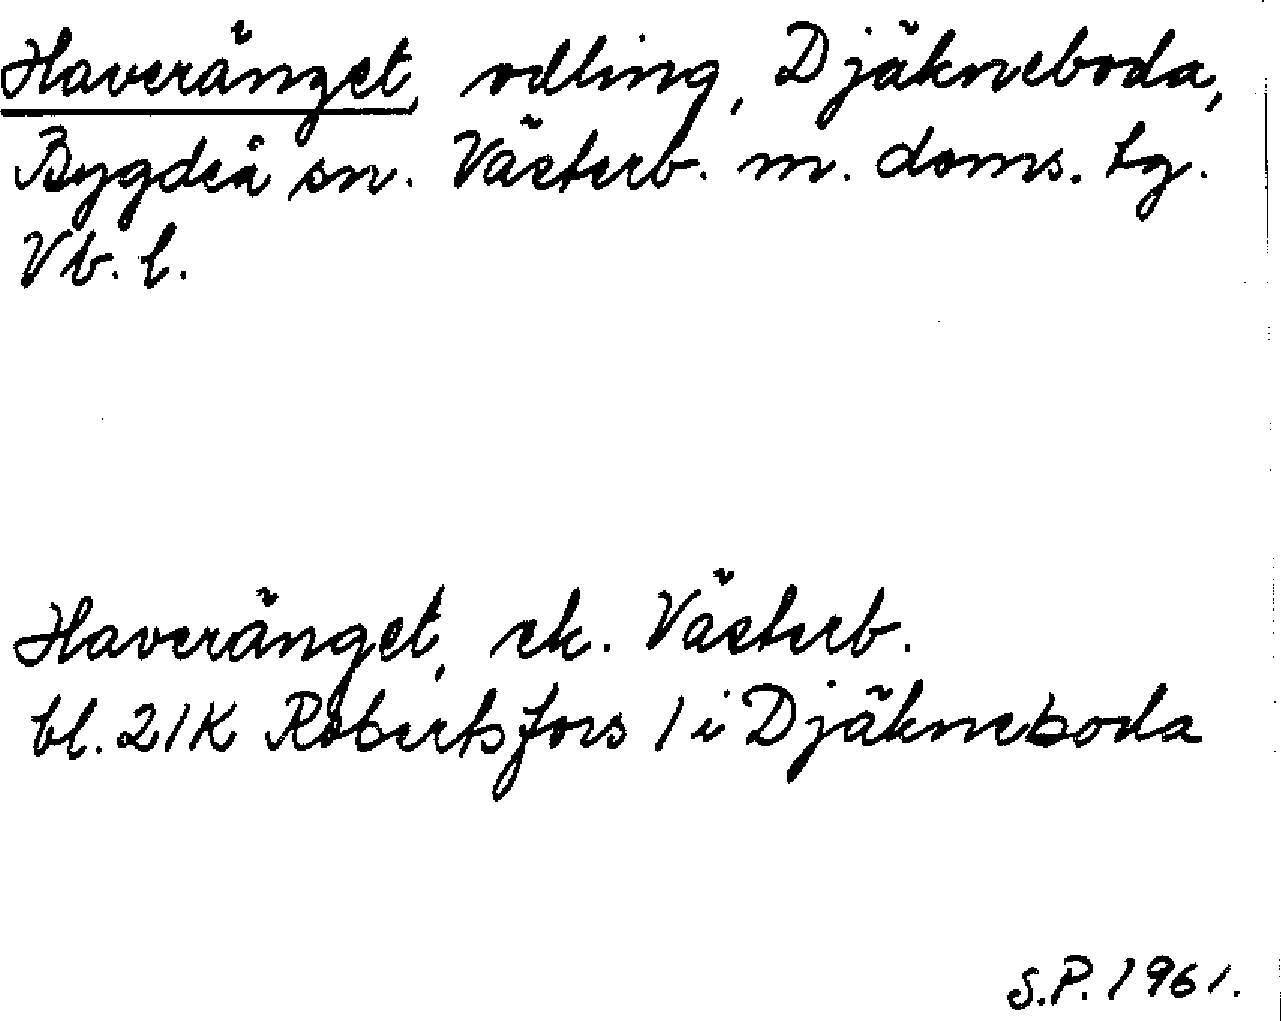 Haveränget, odling, Djäkneboda,
Bygdeå sn. Västerb. m. doms. tg.
Vb. l.
Haveränget, ek. Västerb.
bl. 21K Robertsfors 1 i Djäkneboda
S.P. 1961.